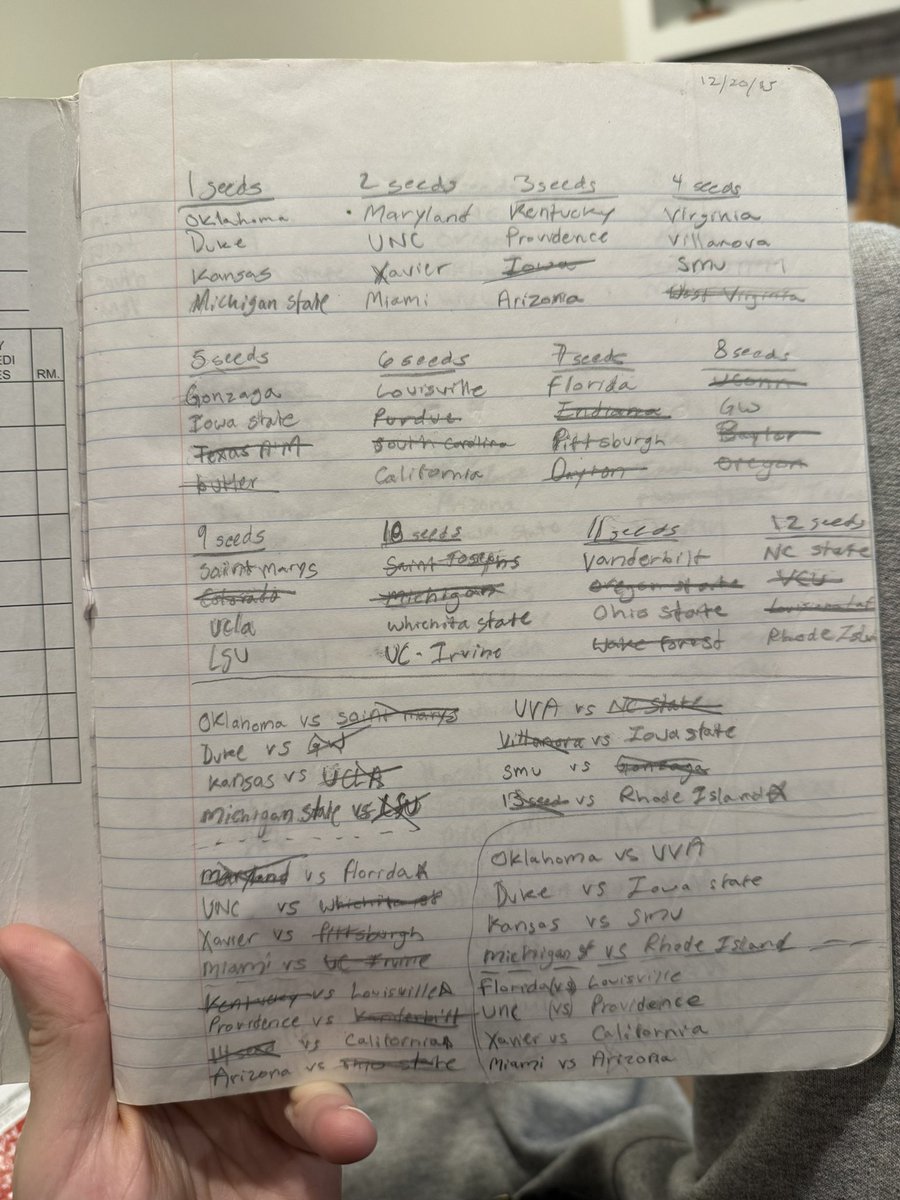 12/20/15
1 seeds 2 seeds 3 seeds 4 seeds
Oklahoma Maryland Kentucky Virginia
Duke UNC Providence Villanova
Kansas Xavier Iowa SMU
Michigan State Miami Arizona West Virginia
5 seeds 6 seeds 7 seeds 8 seeds
Gonzaga Louisville Florida UConn
Iowa state Purdue Indiana GW
Texas A+M South Carolina Pittsburgh Baylor
butler California Dayton Oregon
9 seeds 10 seeds 11 seeds 12 seeds
Saint marys Saint Josephs Vanderbilt NC state
Colorado Michigan Oregon state VCU
UCLA Whichita state Ohio state
LSU UC-Irvine Wake forest Rhode Islan
Oklahoma vs saint marys UVA vs NC State
Duke vs GW Villanova vs Iowa state
Kansas vs UCLA SMU vs Gonzaga
Michigan state vs LSU 13 seed vs Rhode Island
Maryland vs Florida Oklahoma vs UVA
UNC vs Whichita st Duke vs Iowa state
Xavier vs Pittsburgh Kansas vs SMU
Miami vs UC Irvine Michigan st vs Rhode Island
Kentucky vs Louisville Florida (vs) Louisville
Providence vs Vanderbilt UNC (vs) Providence
14 seed vs California Xavier vs California
Arizona vs Ohio state Miami vs Arizona
Y
EDI
ES RM.